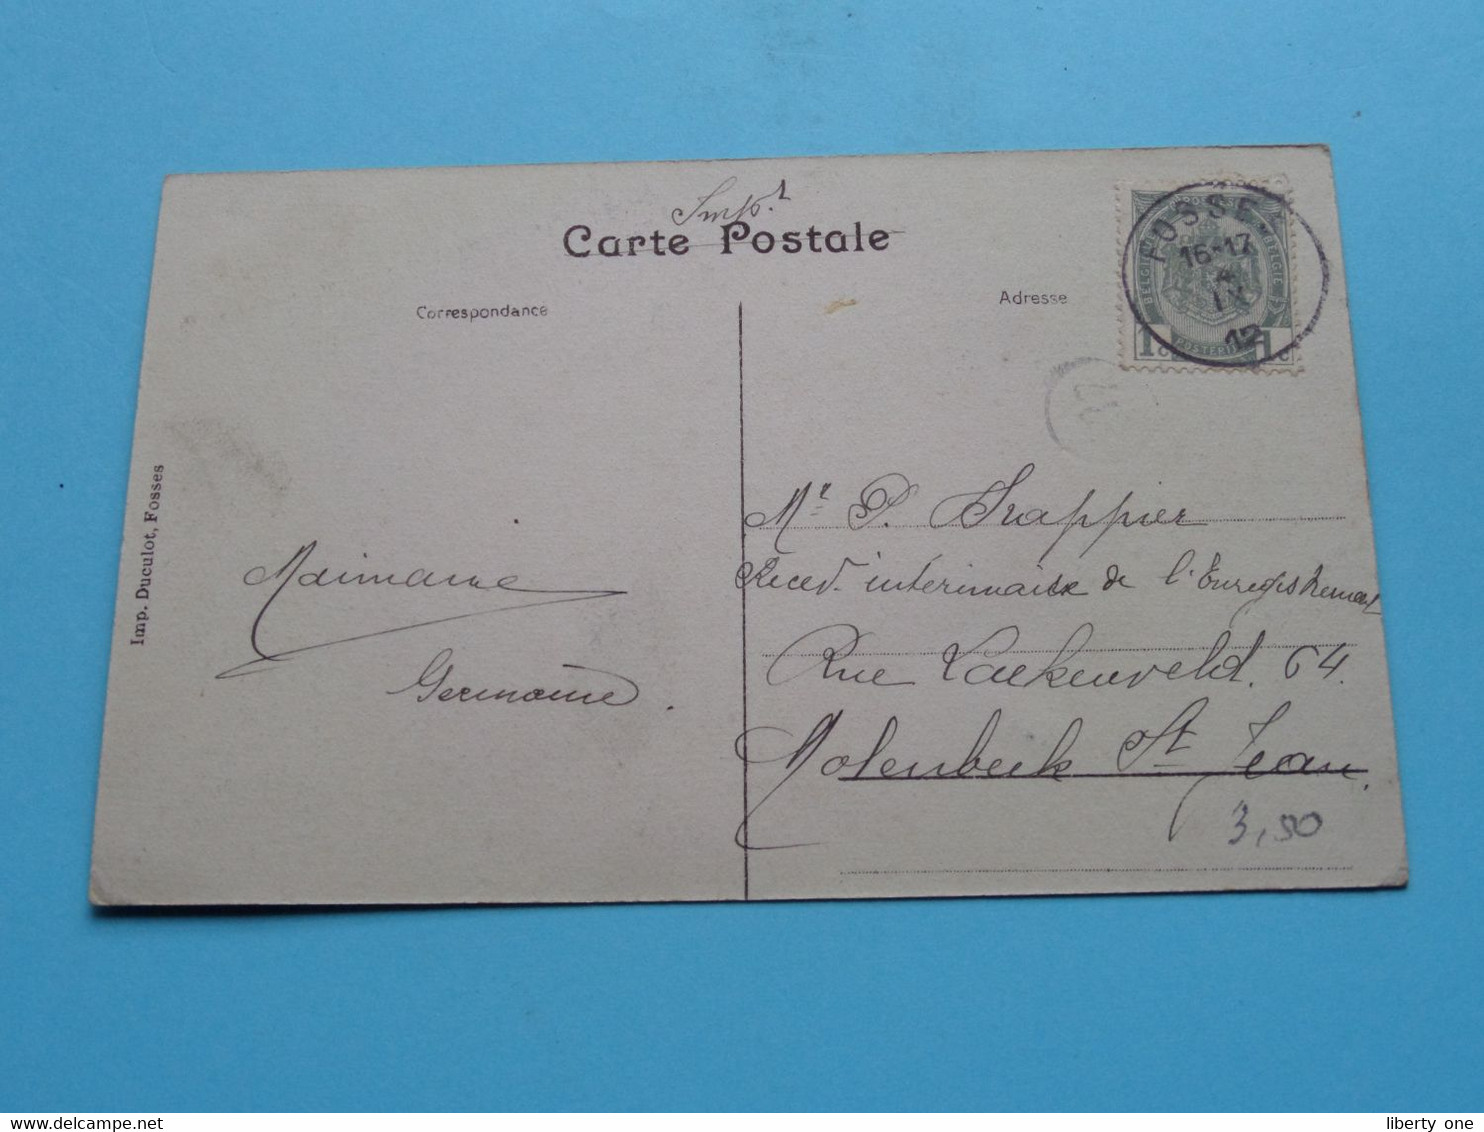 Impt
Carte Postale
Correspondance
Adresse
FOSSE
16-17
4
IX
12
BELGIQUE
BELGIE
1c
1c
Imp. Duculot, Fosses
Germaine.
Mr P. Frappier
Recev. intérimaire de l'Enregistrement
Rue Laekenveld. 64.
Molenbeek St Jean.
3,50
liberty one